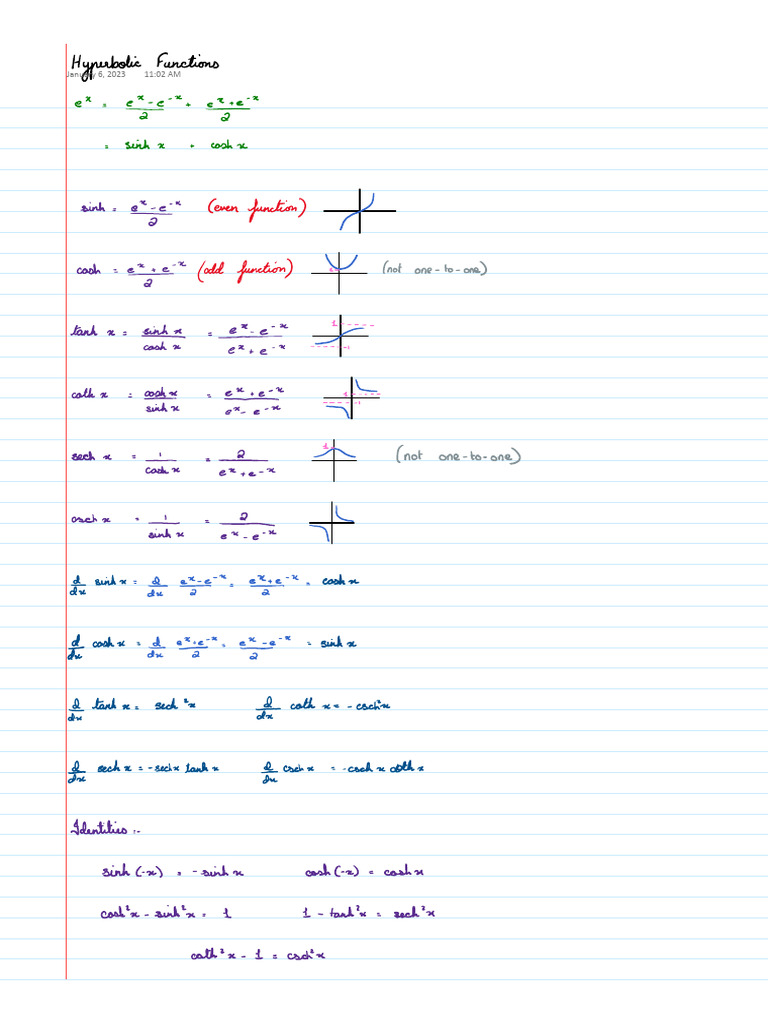 Hyperbolic Functions
January 6, 2023 11:02 AM
e^x = (e^x - e^-x)/2 + (e^x + e^-x)/2
= sinh x + cosh x
sinh = (e^x - e^-x)/2 (even function)
cosh = (e^x + e^-x)/2 (odd function) (not one-to-one)
tanh x = sinh x/cosh x = (e^x - e^-x)/(e^x + e^-x) 1 -1
coth x = cosh x/sinh x = (e^x + e^-x)/(e^x - e^-x) 1 -1
sech x = 1/cosh x = 2/(e^x + e^-x) 1 (not one-to-one)
csch x = 1/sinh x = 2/(e^x - e^-x)
d/dx sinh x = d/dx (e^x - e^-x)/2 = (e^x + e^-x)/2 = cosh x
d/dx cosh x = d/dx (e^x + e^-x)/2 = (e^x - e^-x)/2 = sinh x
d/dx tanh x = sech^2 x d/dx coth x = - csch^2 x
d/dx sech x = - sech x tanh x d/dx csch x = - csch x coth x
Identities :-
sinh (-x) = - sinh x cosh (-x) = cosh x
cosh^2 x - sinh^2 x = 1 1 - tanh^2 x = sech^2 x
coth^2 x - 1 = csch^2 x